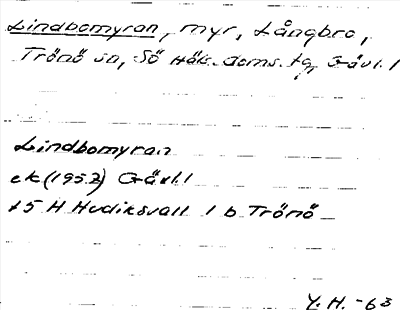 Lindbomyran, myr, Långbro,
Trönö sn, Sö Häls. doms. tg, Gävl. l
Lindbomyran
ek (1957) Gävl. l
15 H Hudiksvall 1 b Trönö
Y. H. -63